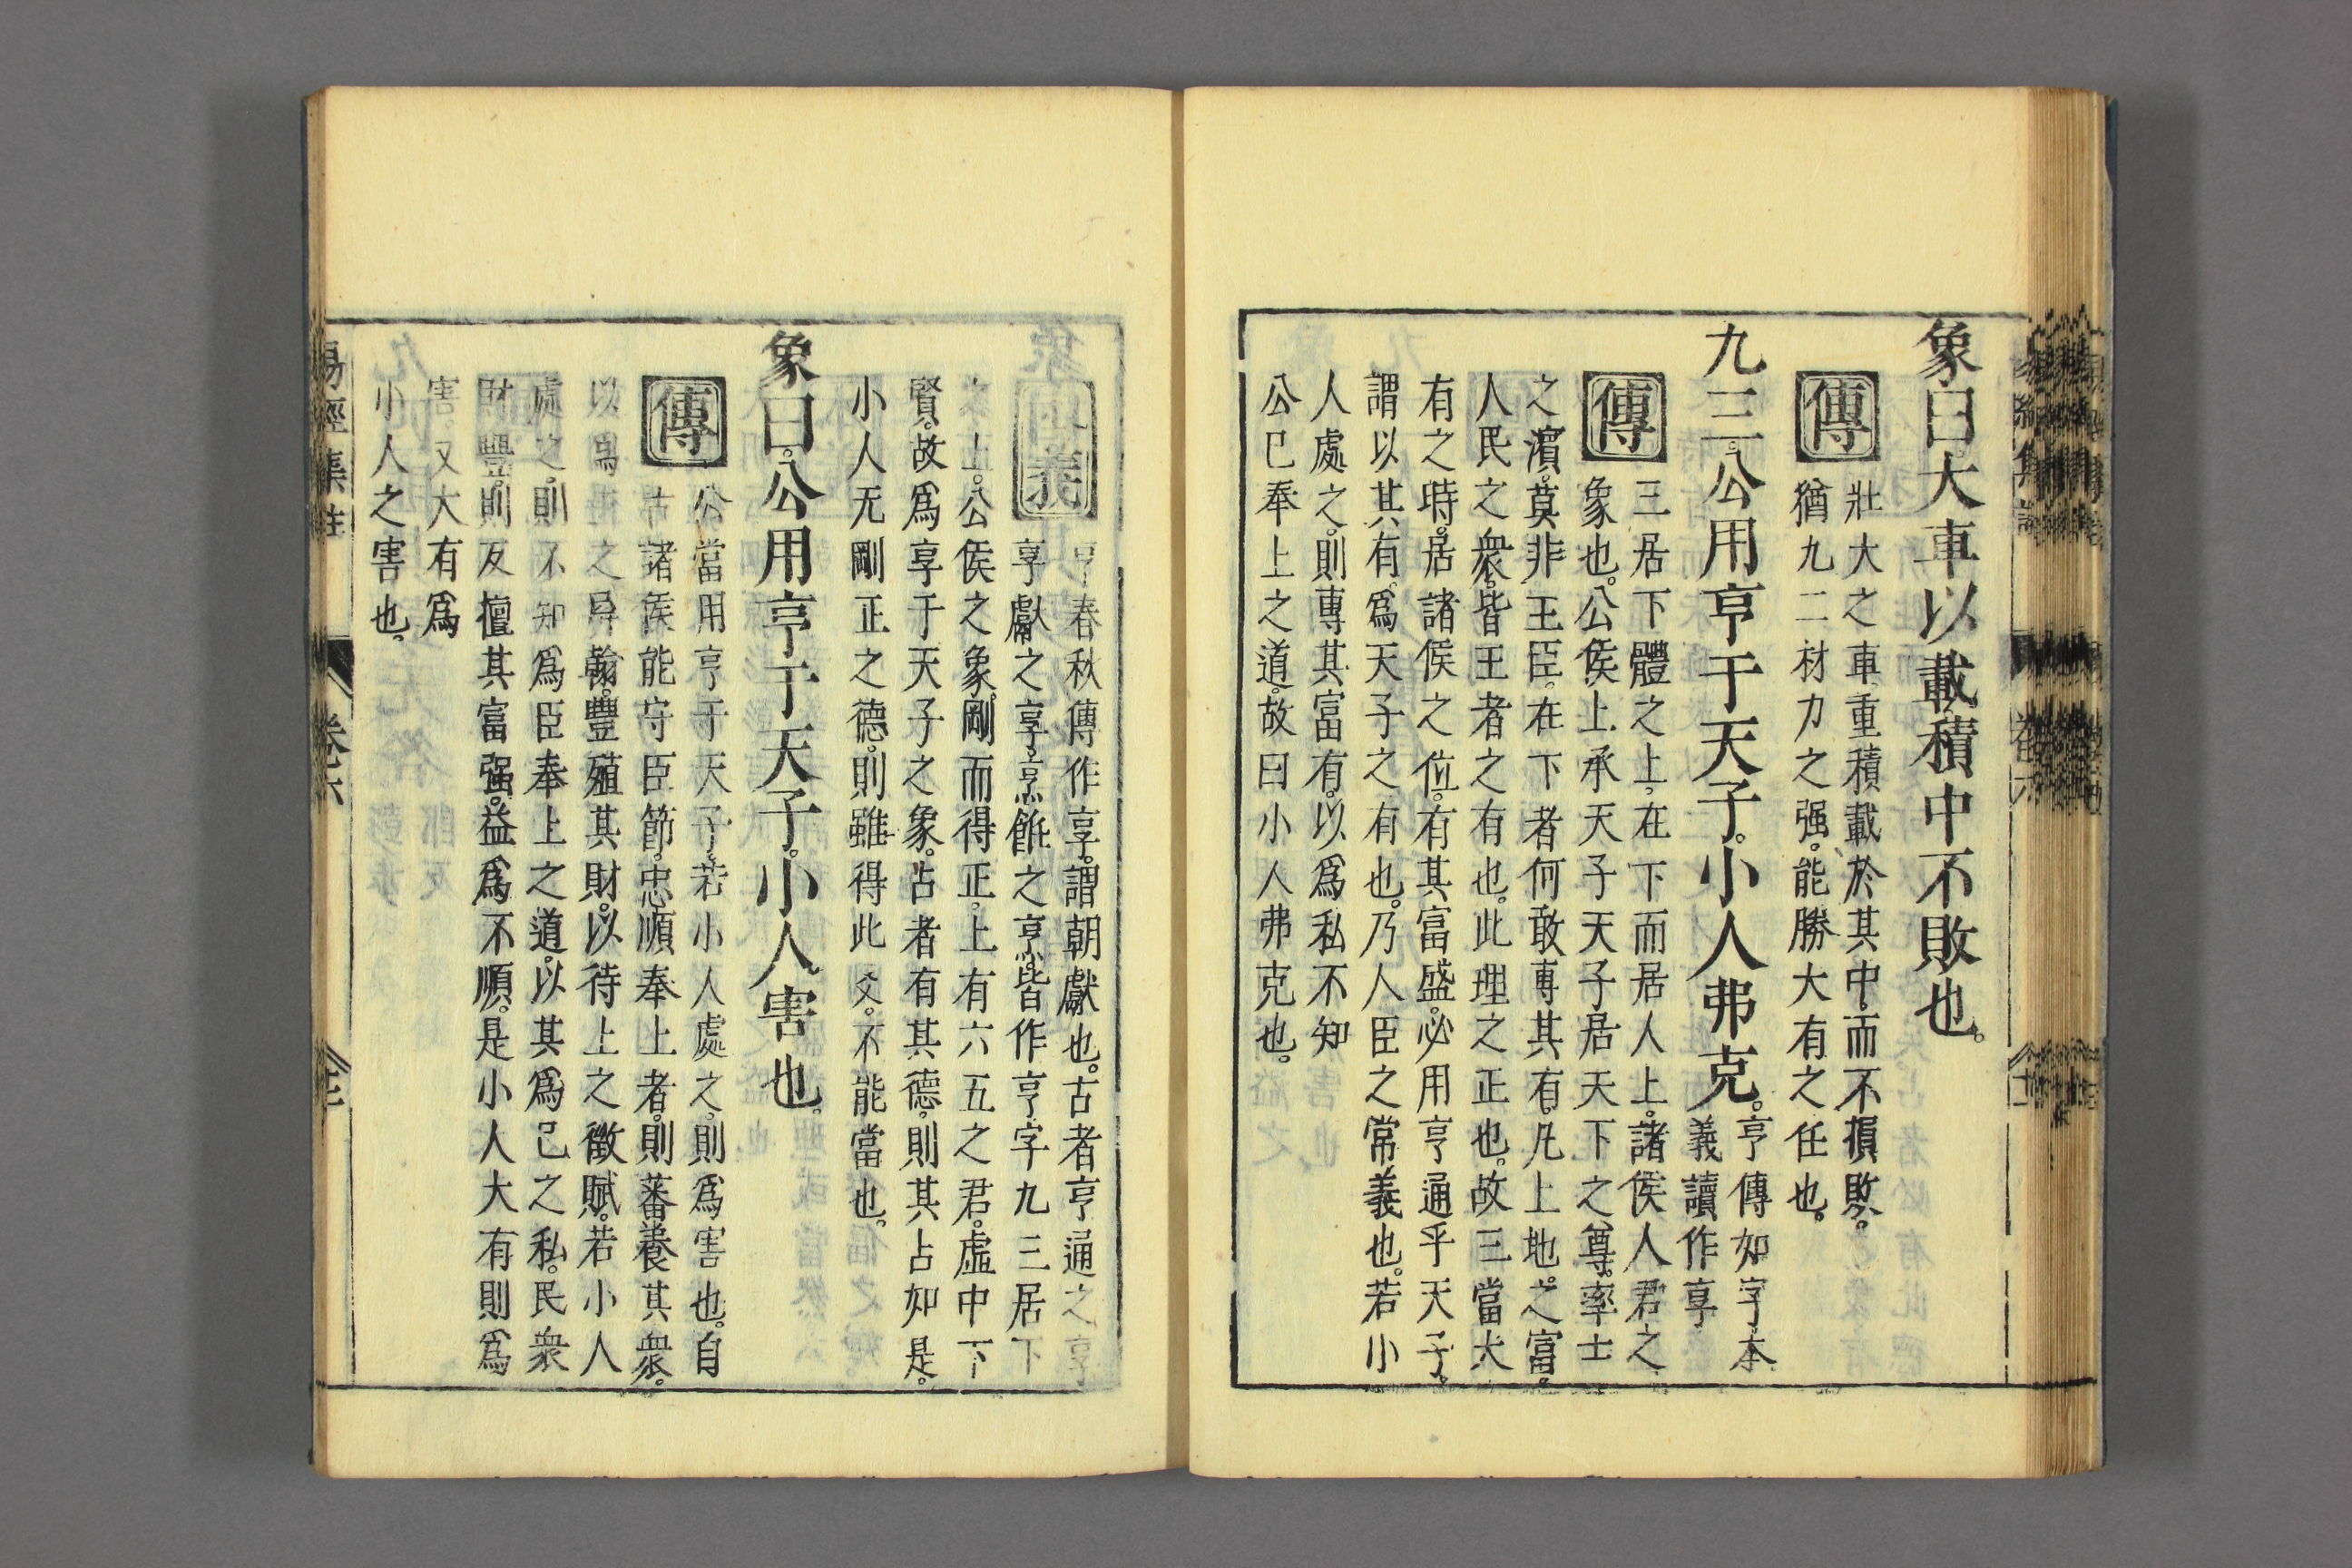 象曰。大車以載。積中不敗也。
傳
壯大之車。重積載於其中。而不損敗。
猶九二材力之强。能勝大有之任也。
九三。公用亨于天子。小人弗克。
亨傳如字本
義讀作享
傳
三居下體之上。在下而居人上。諸侯人君之
象也。公侯上承天子。天子居天下之尊。率土
之濱。莫非王臣。在下者何敢專其有。凡土地之富。
人民之衆。皆王者之有也。此理之正也。故三當大
有之時。居諸侯之位。有其富盛。必用亨通乎天子。
謂以其有。爲天子之有也。乃人臣之常義也。若小
人處之。則專其富有。以爲私。不知
公已奉上之道。故曰小人弗克也。
本義
亨春秋傳作享。謂朝獻也。古者亨通之亨
享獻之享。烹飪之烹。皆作亨字。九三居下
之上。公侯之象。剛而得正。上有六五之君。虛中下
賢。故爲享于天子之象。占者有其德。則其占如是。
小人无剛正之德。則雖得此爻。不能當也。
象曰。公用亨于天子。小人害也。
傳
公當用亨于天子。若小人處之。則爲害也。自
古諸侯能守臣節。忠順奉上者。則蕃養其衆。
以爲王之屏翰。豐殖其財。以待上之徵賦。若小人
處之。則不知爲臣奉上之道。以其爲己之私。民衆
財豐。則反擅其富强。益爲不順。是小人大有則爲
害。又大有爲
小人之害也。
易經集註
卷六